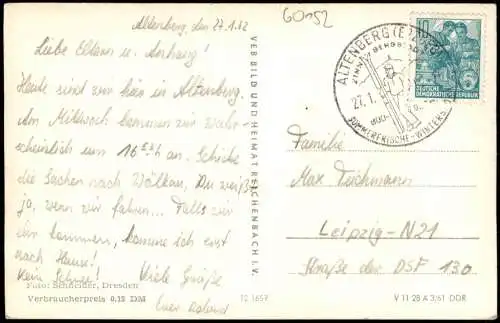 60152
Altenberg, den 27.1.62
Liebe Eltern u. Anhang!
Heute sind wir hier in Altenberg.
Am Mittwoch kommen wir wahr-
scheinlich um 16 an. Schicke
die Sachen nach Wölkau, Du weißt
ja, wenn wir fahren... Falls wir
kommen, komme ich erst
nach Hause!
Kein Schnee! Viele Grüße
Euer Roland
Foto: Schneider, Dresden
Verbraucherpreis 0,15 DM
12 1657
VEB BILD UND HEIMAT REICHENBACH I. V.
ALTENBERG (ERZGEB)
27.1.
SOMMERFRISCHE - WINTERS
10
DEUTSCHE
DEMOKRATISCHE REPUBLIK
Familie
Max Teichmann
Leipzig-N21
Straße der DSF 130
V 11 28 A 3/61 DDR